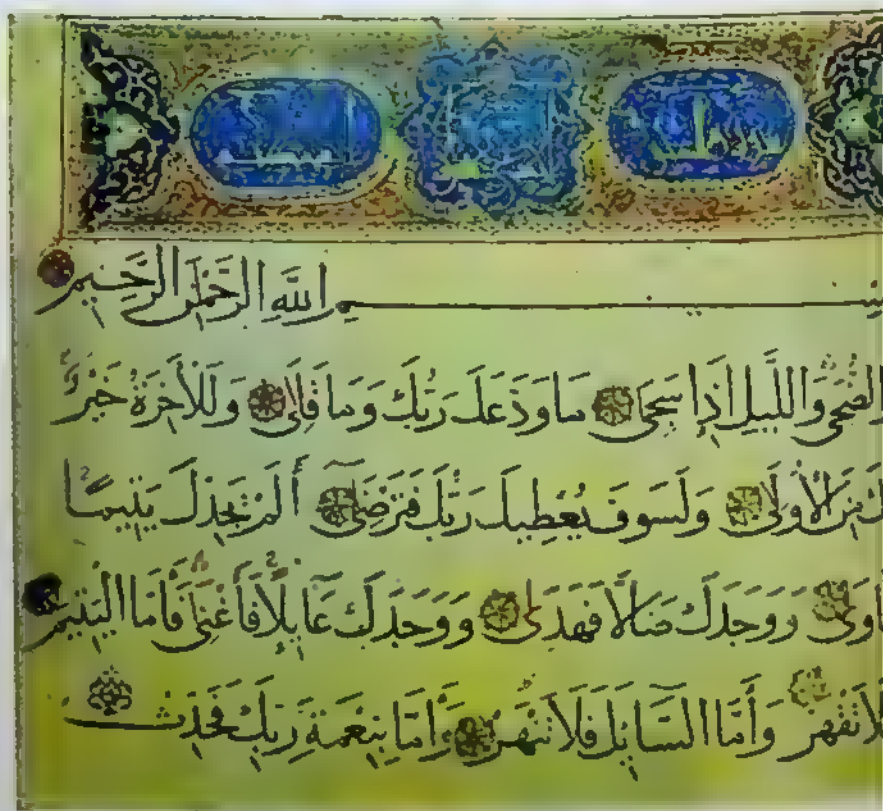 بسم الله الرحمن الرحيم
والضُّحَى وَاللَّيْلِ إِذَا سَجَى مَا وَدَّعَكَ رَبُّكَ وَمَا قَلَى وَلَلْآخِرَةُ خَيْرٌ
لَكَ مِنَ الْأُولَى وَلَسَوْفَ يُعْطِيكَ رَبُّكَ فَتَرْضَى أَلَمْ يَجِدْكَ يَتِيمًا
فَآوَى وَوَجَدَكَ ضَالًّا فَهَدَى وَوَجَدَكَ عَايِلًا فَأَغْنَى فَأَمَّا الْيَتِيمَ
فَلَا تَقْهَرْ وَأَمَّا السَّايِلَ فَلَا تَنْهَرْ وَأَمَّا بِنِعْمَةِ رَبِّكَ فَحَدِّثْ